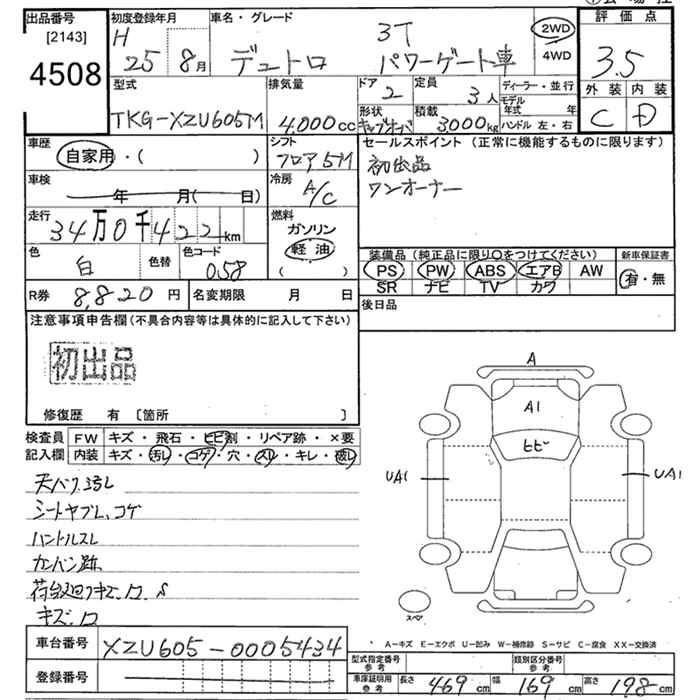 出品番号
[2143]
4508
初度登録年月
H
25 8月
車名・グレード
3T
デュトロ パワーゲート車
2WD
4WD
評価点
3.5
外装 内装
C D
型式
TKG-XZU605M
排気量
4,000cc
ドア
2
定員
3人
ディーラー・並行
モデル年式 年
ハンドル 左・右
形状
キャブオーバ
積載
3000kg
車歴
自家用・( )
シフト
フロア5M
セールスポイント (正常に機能するものに限ります)
初出品
ワンオーナー
車検
年 月( 日)
冷房
A/C
走行
34万0千422km
燃料
ガソリン
軽油
( )
色
白
色替
色コード
058
装備品(純正品に限り○をつけてください)
PS PW ABS エアB AW
SR ナビ TV カワ
新車保証書
有・無
R券 8,820円
名変期限 月 日
後日品
注意事項申告欄(不具合内容等は具体的に記入して下さい)
初出品
修復歴 有 〔箇所 〕
検査員
記入欄
FW キズ・飛石・ヒビ割・リペア跡・×要
内装 キズ・汚れ・コゲ・穴・スレ・キレ・破れ
天バリ汚レ
シートヤブレ、コゲ
ハンドルスレ
カンバン跡
キズ、ロ
A
A1
ヒビ
UA1
UA1
スペア
A-キズ E-エクボ U-凹み W-補修跡 S-サビ C-腐食 XX-交換済
車台番号 XZU605-0005434
登録番号
型式指定番号
参考
類別区分番号
参考
車庫証明用
参考
長さ 469cm 幅 169cm 高さ 198cm